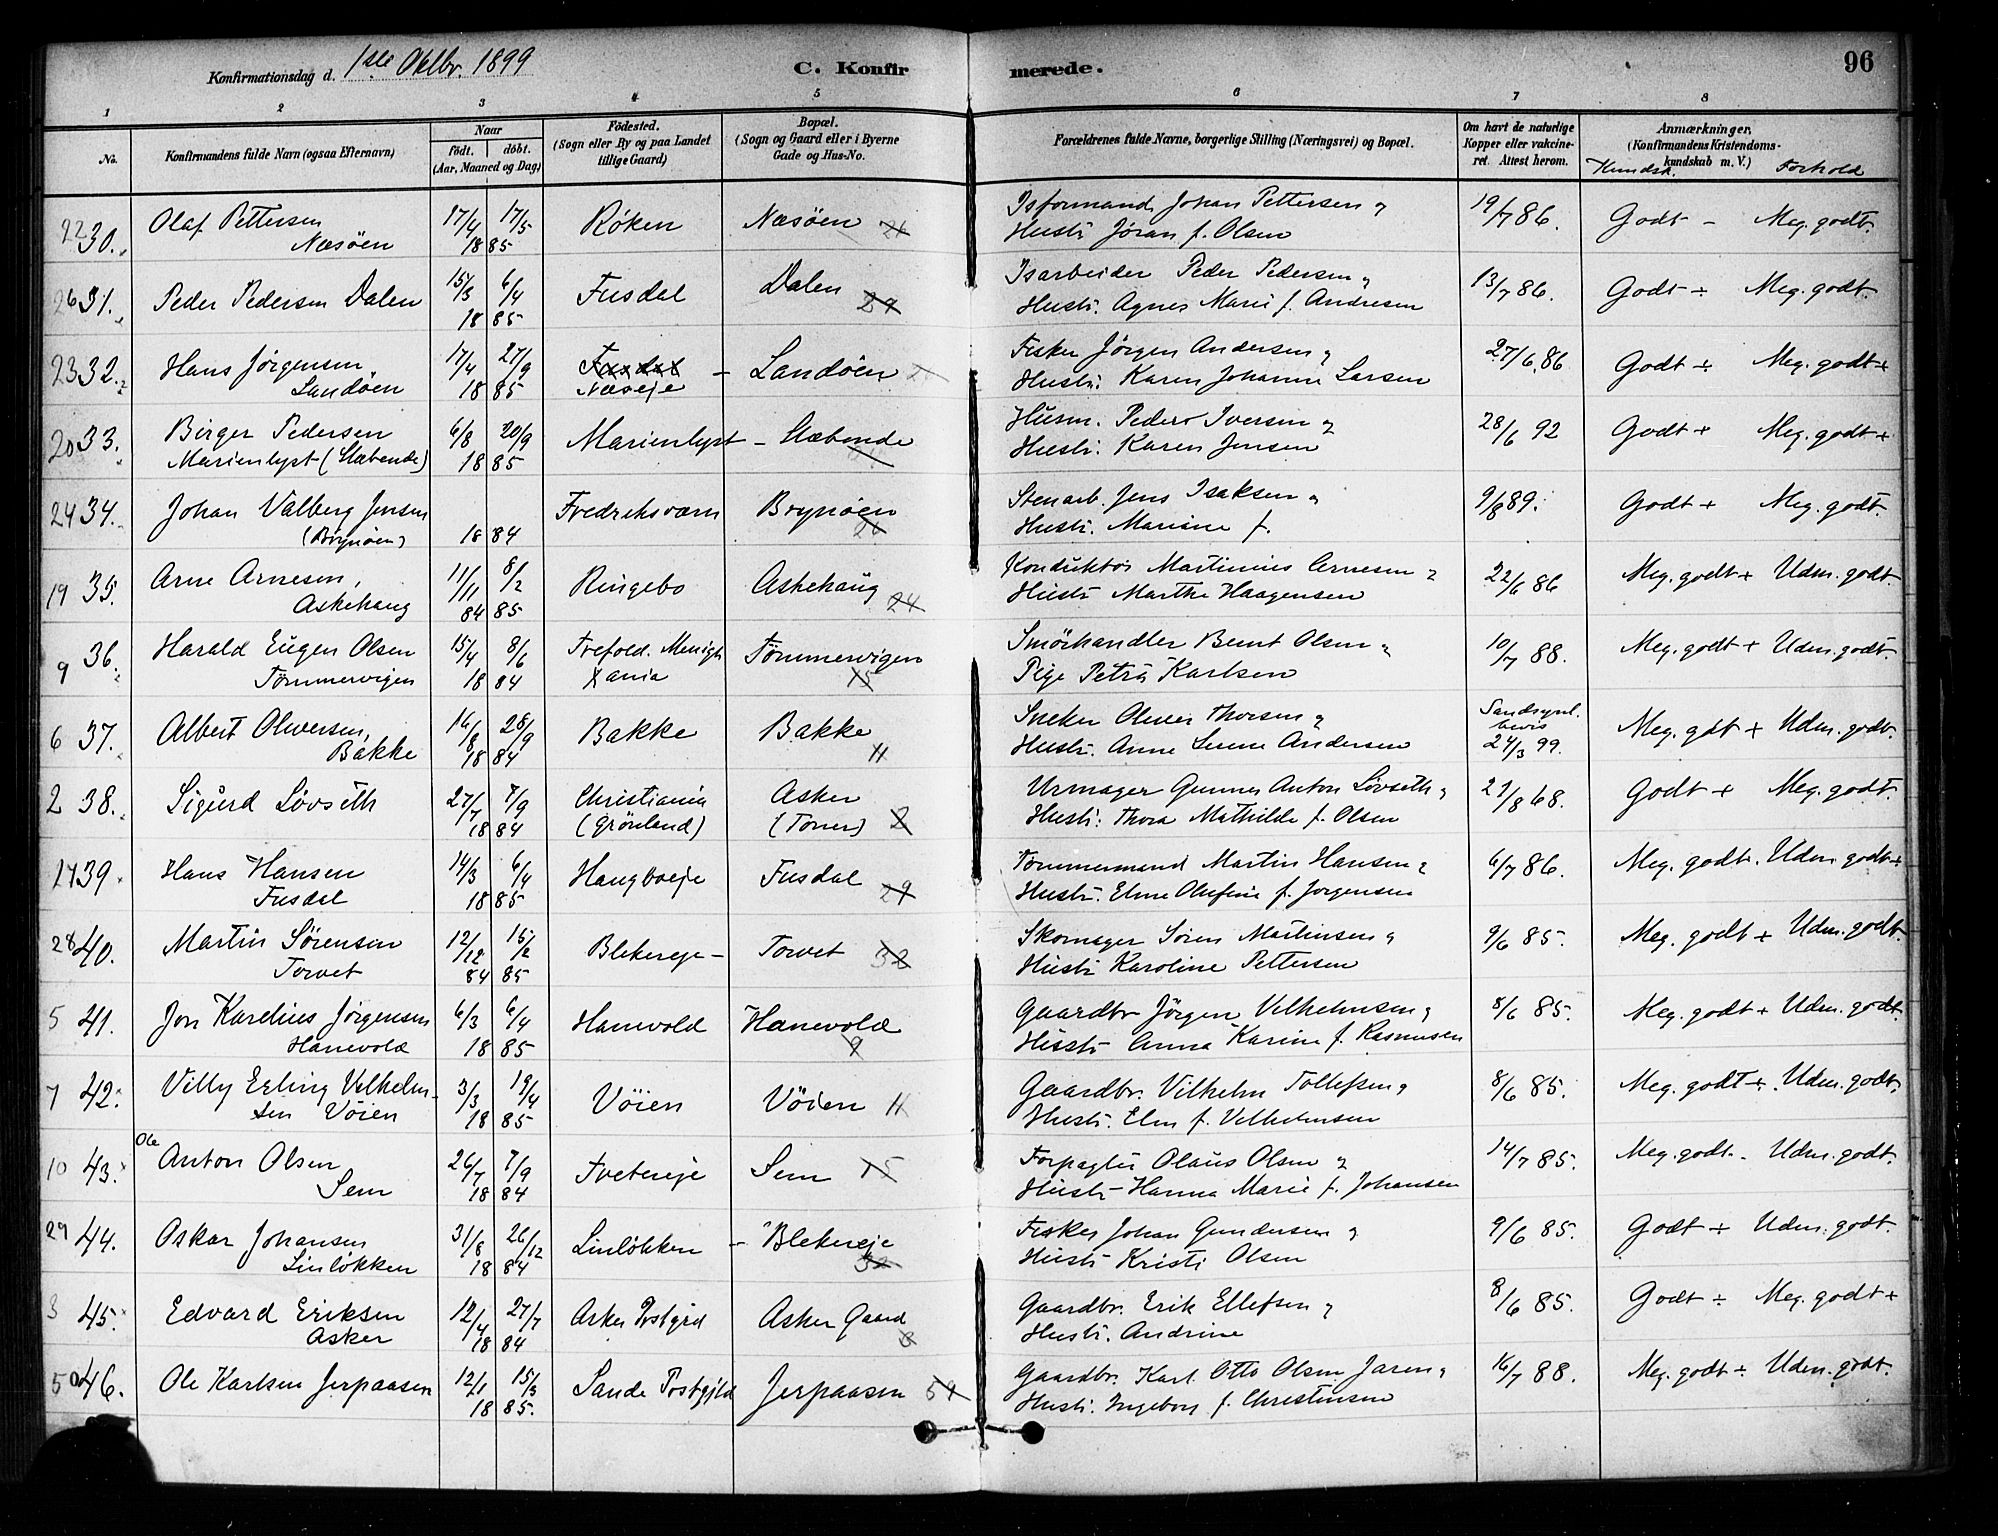 Konfirmationsdag d. 1ste Oktbr. 1899
C. Konfirmerede.
96
1 2 3 4 5 6 7 8
No.
Konfirmandens fulde Navn (ogsaa Efternavn)
Naar
født. døbt.
(Aar, Maaned og Dag)
Fødested.
(Sogn eller By og paa Landet
tillige Gaard)
Bopæl.
(Sogn og Gaard eller i Byerne
Gade og Hus-No.
Forældrenes fulde Navne, borgerlige Stilling (Næringsvei) og Bopæl.
Om havt de naturlige
Kopper eller vakcine-
ret. Attest herom.
Anmærkninger.
(Konfirmandens Kristendoms-
kundskab m. V.)
Kundsk. Forhold
22 30. Olaf Pettersen 17/4 17/5 Røken Næsöen 21 Isformand Johan Pettersen & 19/7 86. Godt - Meg. godt.
Næsöen 18 85 Hustr. Jøran f. Olsen
26 31. Peder Pedersen Dalen 15/3 6/4 Fusdal Dalen 27 Isarbeider Peder Pedersen & 13/7 86. Godt ÷ Meg. godt.
18 85 Hustr. Agnes Marie f. Andresen
23 32. Hans Jørgensen 17/4 27/9 Fusdal - Landöen Fisker Jörgen Andersen & 27/6 86 Godt ÷ Meg. godt +
Landöen 18 85 Næseje Hustr. Karen Johanne Larsen
20 33. Birger Pedersen 6/8 20/9 Marienlyst - Slæbende Husm. Peder Iversen & 28/6 92 Godt + Meg. godt +
Marienlyst (Slæbende) 18 85 Hustr. Karen Jensen
24 34. Johan Valberg Jensen Fredriksværn Brynöen 26 Stenarb. Jens Isaksen & 9/8 89. Godt + Meg. godt.
(Brynöen) 18 84 Hustr. Mariane f.
19 35. Arne Arnesen, 11/11 8/2 Ringebo Askehaug 24 Konduktør Martinius Arnesen & 22/6 86 Meg. godt + Udm. godt
Askehaug 84 85 Hustr. Marthe Haagensen
9 36. Harald Eugen Olsen 15/4 8/6 Trefold. Menigh Tömmervigen 15 Smörhandler Bernt Olsen & 10/7 88. Meg. godt + Udm. godt.
Tömmervigen 18 84 Xania Pige Petra Karlsen
6 37. Albert Oliversen, 16/8 28/9 Bakke Bakke 11 Sneker Oliver Thorsen & Sandsynl. bevis 24/3 99. Meg. gdt + Udm. godt.
Bakke 18 84 Hustr. Anne Andersen
2 38. Sigurd Lövseth 27/7 7/9 Christiania Asker 2 Urmager Gunnar Anton Lövseth & 21/8 68. Godt + Meg. godt.
18 84 (Grönland) (Toner) Hustr. Thora Mathilde f. Olsen
17 39. Hans Hansen 14/3 6/4 Haugbveje Fusdal 29 Tømmermand Martin Hansen & 6/7 86. Meg. godt. Udm. godt +
Fusdal 18 85 Hustr. Elme Olufine f. Jorgensen
28 40. Martin Sörensen 12/12 15/2 Blekereje - Torvet 32 Skomager Sören Martinsen & 9/6 85. Meg. godt + Udm. godt.
Torvet 84 85 Hustr. Karoline Pettersen
5 41. Jon Karelius Jörgensen 6/3 6/4 Hanevold Hanevold 9 Gaardbr Jörgen Velhelmsen & 8/6 85. Meg. godt + Udm. godt.
Hanevold 18 85 Hustr. Anna Karine f. Rasmusen
7 42. Villy Erling Velhelm- 3/3 19/4 Vöien Vöien 11 Gaardbr. Vilhelm Tollefsen & 8/6 85. Meg. godt + Udm. godt.
sen Vöien 18 85 Hustr. Elen f. Velhelmsen
10 43. Ole Anton Olsen 26/7 7/9 Tvetereje Sem 15 Forpagter Olaus Olsen & 14/7 85. Meg. godt. - Udm. godt.
Sem 18 84 Hustr. Hanna Marie f. Johansen
29 44. Oskar Johansen 31/8 26/12 Linløkken - Blekereje 32 Fisker Johan Gundersen & 9/6 85. Godt ÷ Udm. godt.
Linløkken 18 84 Hustr. Kristi Olsen
3 45. Edvard Eriksen 12/4 27/7 Asker Prstgjd Asker Gaard 3 Gaardbr. Erik Ellefsen & 8/6 85. Godt ÷ Meg. godt +
Asker 18 84 Hustr. Andrine
50 46. Ole Karlsen Jerpaasen 12/1 15/3 Sande Prstgjld Jerpaasen 59 Gaardbr. Karl Otto Olsen Jaren & 16/7 88. Meg. godt ÷ Udm. godt.
18 85. Hustr. Ingeborg f. Christensen